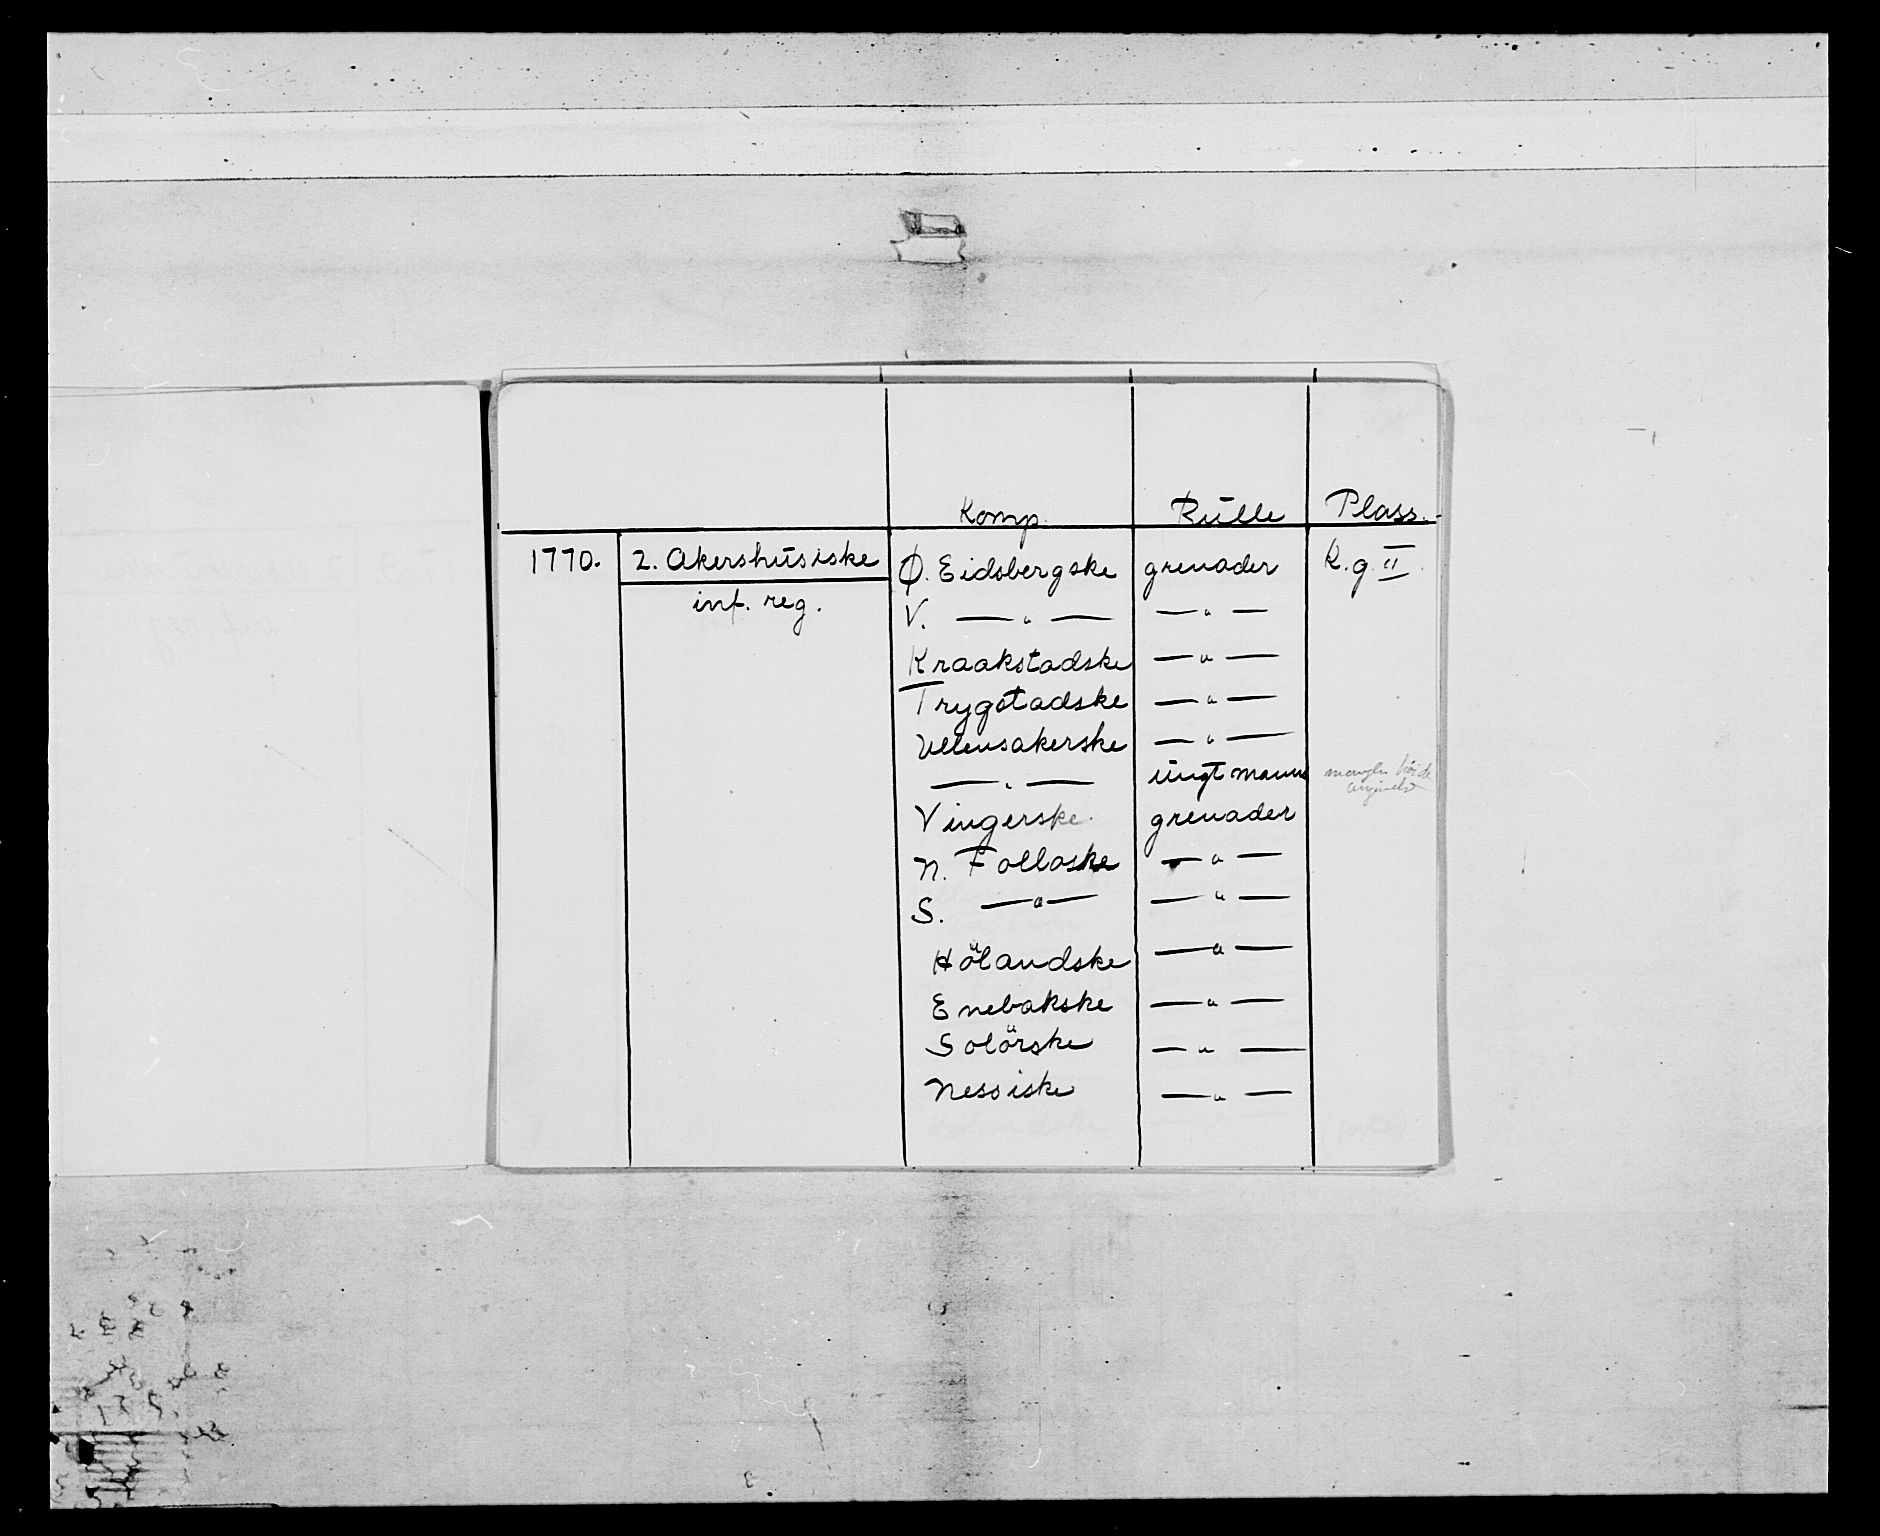 Komp. Rulle Plass.
1770. 2. Akershusiske Ø. Eidsbergske grenader K.g. II
inf. reg. V. —"— —"—
Kraakstadske —"—
Trygstadske —"—
Ullensakerske —"—
—"— ungt mannsk mangler
Vingerske grenader
N. Folloske —"—
S. —"— —"—
Hölandske —"—
Enebakske —"—
Solörske —"—
Nessiske —"—